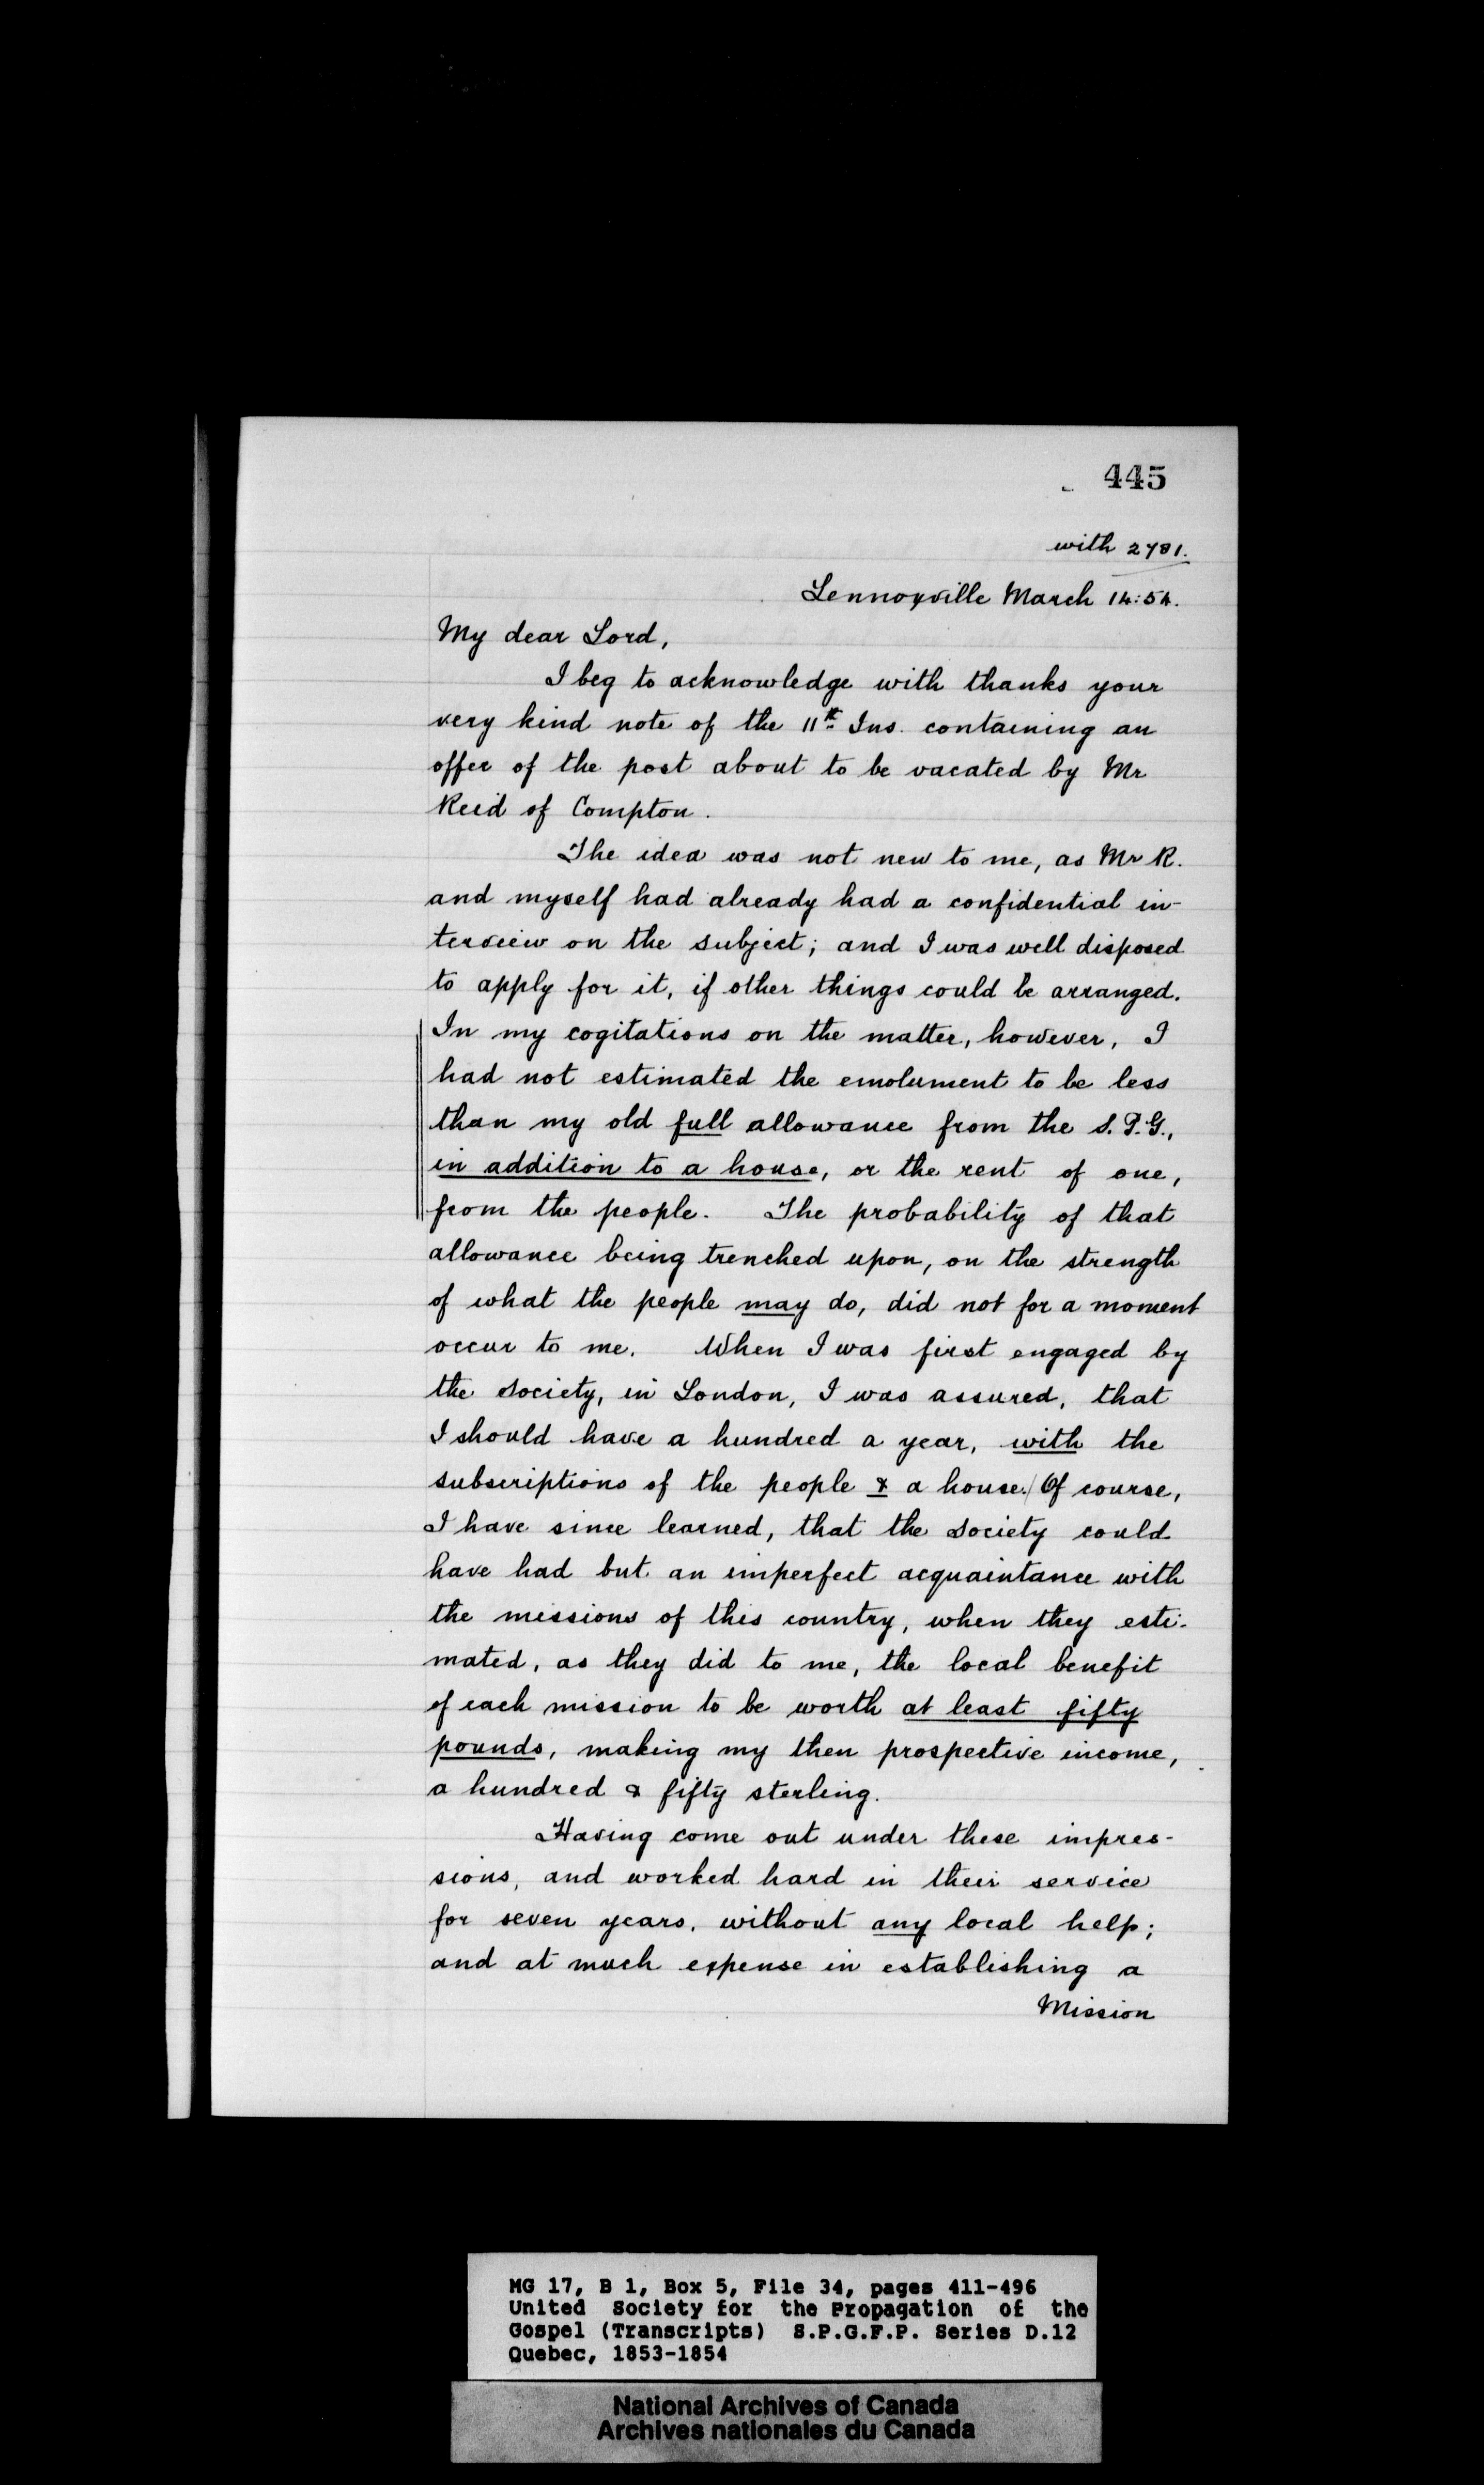 445
with 2781.
Lennoxville March 14:54.
My dear Lord,
I beg to acknowledge with thanks your
very kind note of the 11th Ins. containing an
offer of the post about to be vacated by Mr
Reid of Compton.
The idea was not new to me, as Mr R.
and myself had already had a confidential in-
terview on the subject; and I was well disposed
to apply for it, if other things could be arranged.
In my cogitations on the matter, however, I
had not estimated the emolument to be less
than my old full allowance from the S.P.G.,
in addition to a house, or the rent of one,
from the people. The probability of that
allowance being trenched upon, on the strength
of what the people may do, did not for a moment
occur to me. When I was first engaged by
the Society, in London, I was assured, that
I should have a hundred a year, with the
subscriptions of the people & a house./Of course,
I have since learned, that the Society could
have had but an imperfect acquaintance with
the missions of this country, when they esti-
mated, as they did to me, the local benefit
of each mission to be worth at least fifty
pounds, making my then prospective income,
a hundred & fifty sterling.
Having come out under these impres-
sions, and worked hard in their service
for seven years, without any local help;
and at much expense in establishing a
Mission
MG 17, B 1, Box 5, File 34, pages 411-496
United Society for the Propagation of the
Gospel (Transcripts) S.P.G.F.P. Series D.12
Quebec, 1853-1854
National Archives of Canada
Archives nationales du Canada